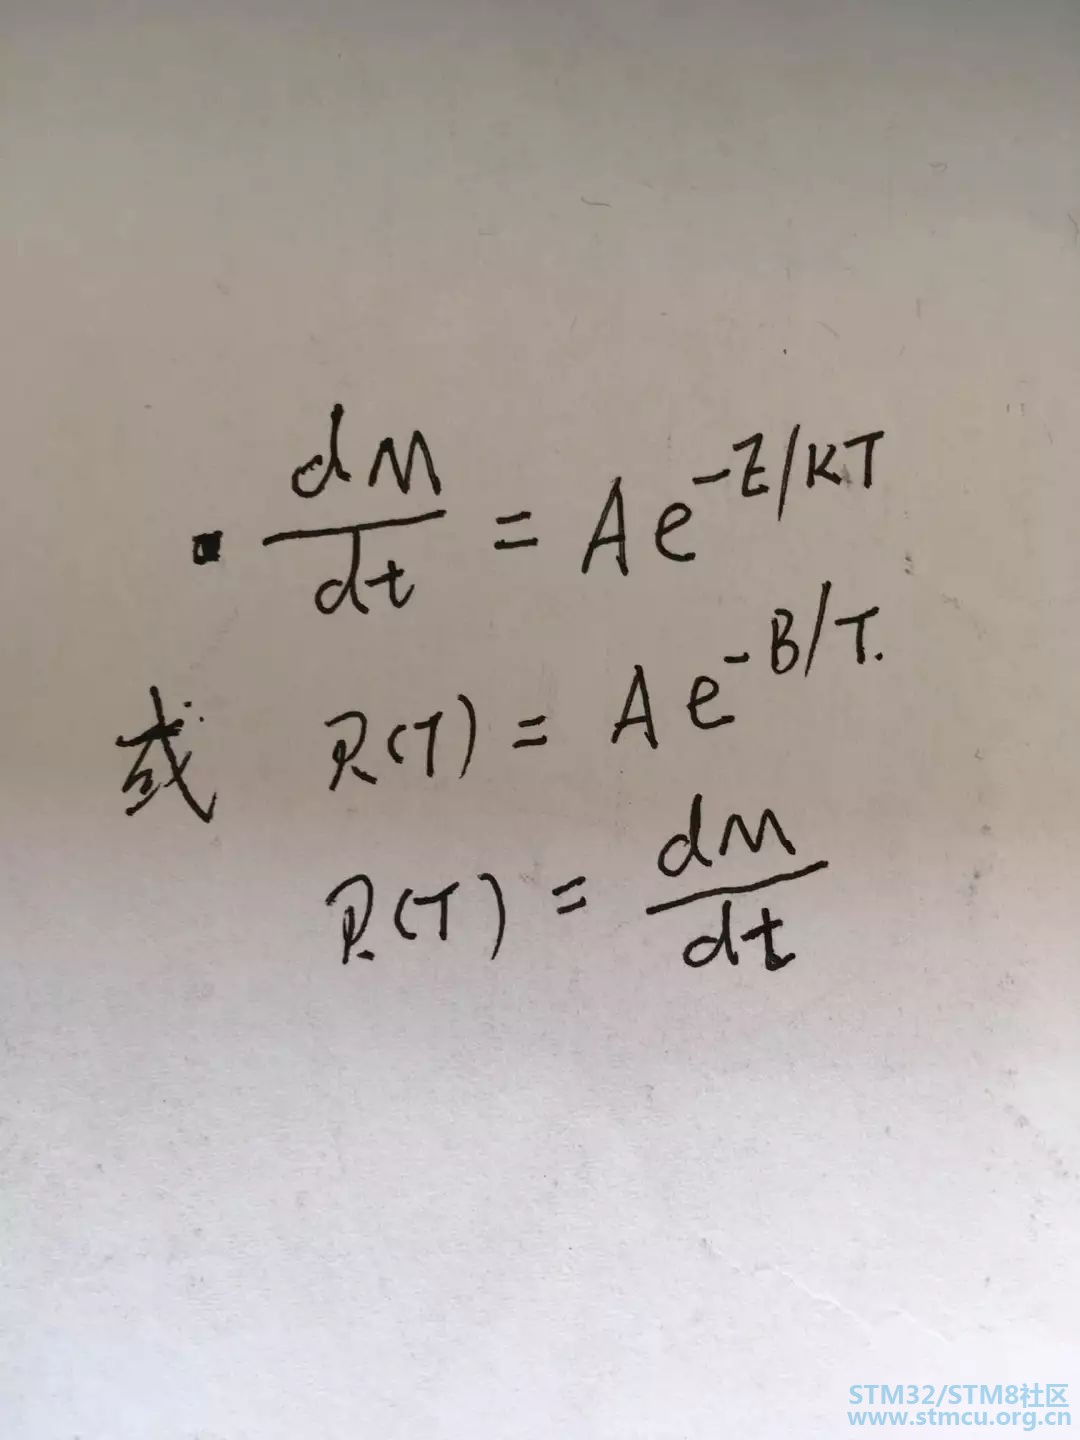 dM/dt = Ae^{-E/KT}
或 R(T) = Ae^{-B/T}.
R(T) = dM/dt
STM32/STM8社区
www.stmcu.org.cn